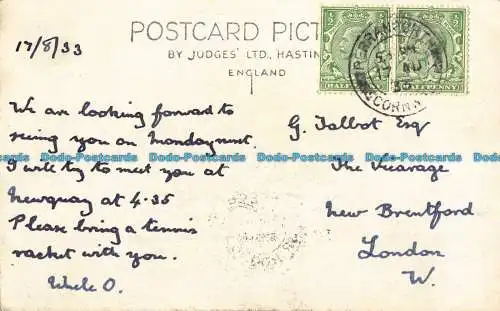 POSTCARD PICT
BY JUDGES' LTD., HASTIN
ENGLAND
17/8/33
HALFPENNY
HALFPENNY
PERRANPORTH
17 AU
33
CORNW
We are looking forward to
seeing you on Monday next.
I will try to meet you at
Newquay at 4.35
Please bring a tennis
racket with you.
Uncle O.
G. Talbot Esq
The Vicarage
New Brentford
London
W.
Dodo-Postcards Dodo-Postcards Dodo-Postcards Dodo-Postcards Dodo-Postcards